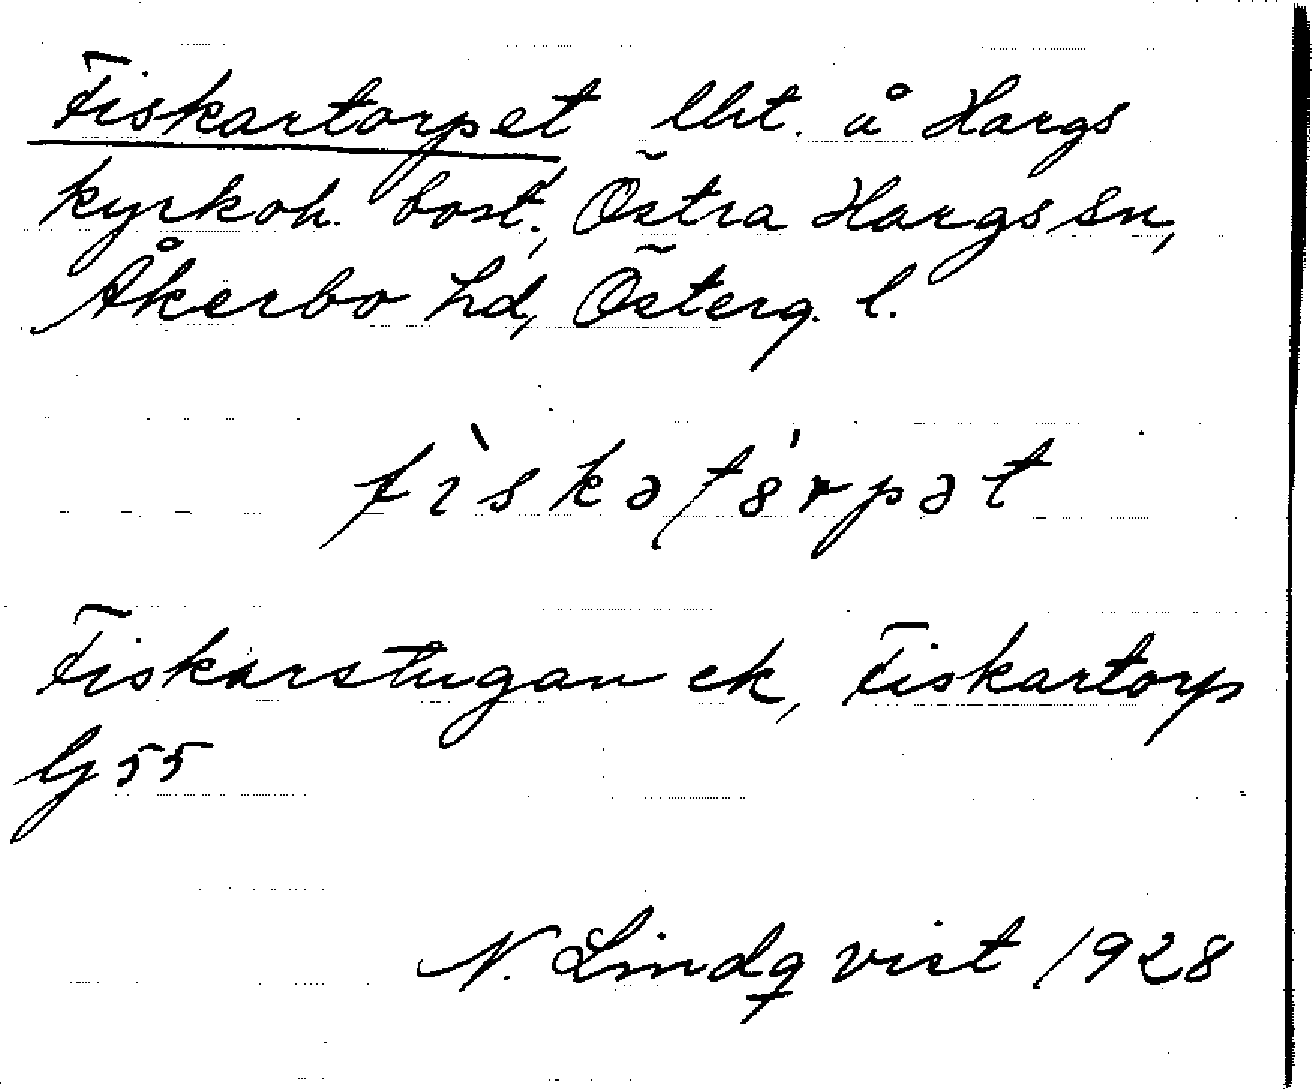 Fiskartorpet lht. å Hargs
kyrkoh. bost., Östra Hargs sn,
Åkerbo hd, Österg. l.
fìskət8́rpət
Fiskarstugan ek, Fiskartorp
G 55
N. Lindqvist 1928